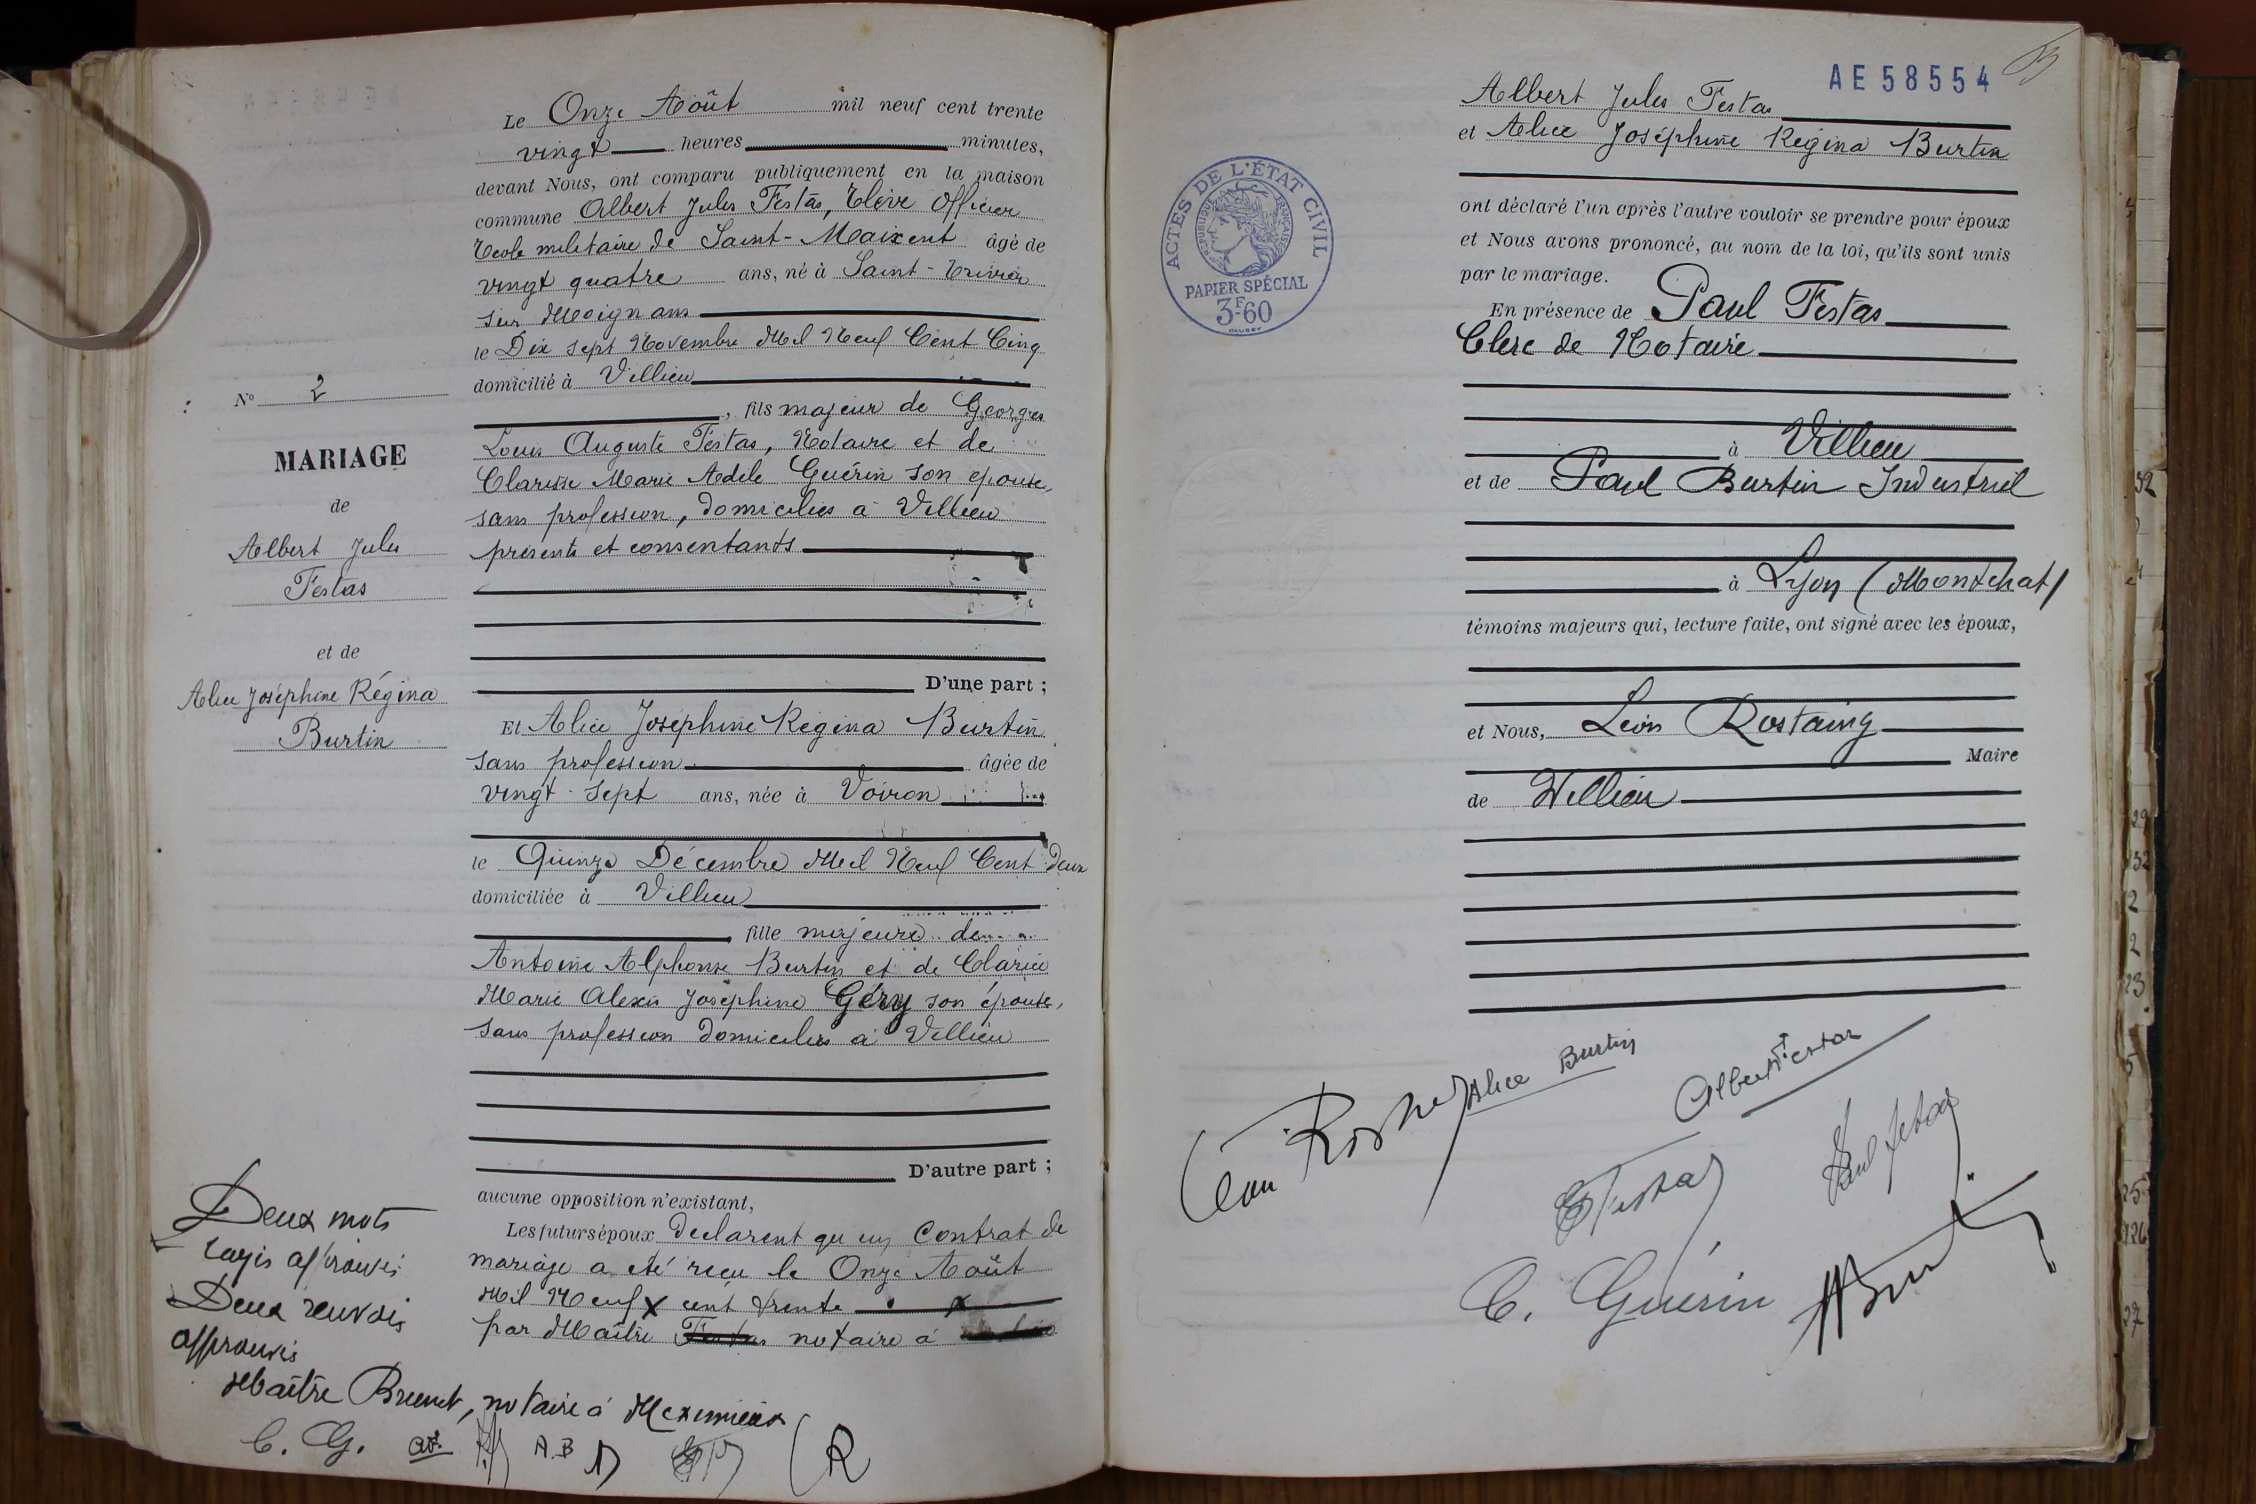 Le Onze Août mil neuf cent trente
vingt heures minutes,
devant Nous, ont comparu publiquement en la maison
commune Albert Jules Festas, Elève Officier
Ecole militaire de Saint-Maixent âgé de
vingt quatre ans, né à Saint-Trivier
sur Moignans
le Dix sept Novembre Mil Neuf Cent Cinq
domicilié à Villieu
, fils majeur de Georges
Louis Auguste Festas, Notaire et de
Clarisse Marie Adèle Guérin son épouse,
sans profession, domiciliés à Villieu
présents et consentants
D'une part ;
Et Alice Joséphine Régina Burtin
sans profession âgée de
vingt-sept ans, née à Voiron
le Quinze Décembre Mil Neuf Cent deux
domiciliée à Villieu
, fille majeure de
Antoine Alphonse Burtin et de Clarice
Marie Alexis Joséphine Géry son épouse,
sans profession domiciliés à Villieu
D'autre part ;
aucune opposition n'existant,
Les futurs époux declarent qu'un Contrat de
mariage a été reçu le Onze Août
Mil Neuf x cent trente x
par Maître notaire à
Nº 2
MARIAGE
de
Albert Jules
Festas
et de
Alice Joséphine Régina
Burtin
Deux mots
rayés approuvés
Deux renvois
approuvés
Maître Brunet, notaire à Meximieux
C. G. A.B R
AE 58554
Albert Jules Festas
et Alice Joséphine Régina Burtin
ACTES DE L'ÉTAT CIVIL
RÉPUBLIQUE FRANÇAISE
PAPIER SPÉCIAL
3F.60
ont déclaré l'un après l'autre vouloir se prendre pour époux
et Nous avons prononcé, au nom de la loi, qu'ils sont unis
par le mariage.
En présence de Paul Festas
Clerc de Notaire
à Villieu
et de Paul Burtin Industriel
à Lyon (Montchat)
témoins majeurs qui, lecture faite, ont signé avec les époux,
et Nous, Léon Rostaing
Maire
de Villieu
Alice Burtin
Albert Festas
Paul Festas
C. Guérin